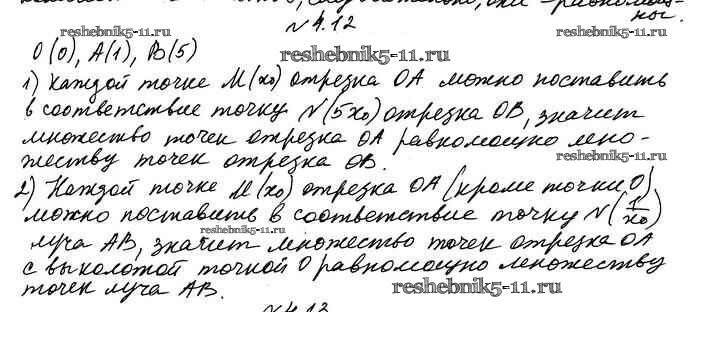 следовательно, они - равномощ-
ны.
N 4.12
reshebnik5-11.ru
O(0), A(1), B(5)
reshebnik5-11.ru
1) Каждой точке M(x₀) отрезка OA можно поставить
в соответствие точку N(5x₀) отрезка OB, значит
множество точек отрезка OA равномощно мно-
жеству точек отрезка OB.
reshebnik5-11.ru
2) Каждой точке M(x₀) отрезка OA (кроме точки O)
можно поставить в соответствие точку N(1/x₀)
reshebnik5-11.ru
луча AB, значит множество точек отрезка OA
с выколотой точкой O равномощно множеству
точек луча AB.
reshebnik5-11.ru
N 4.13